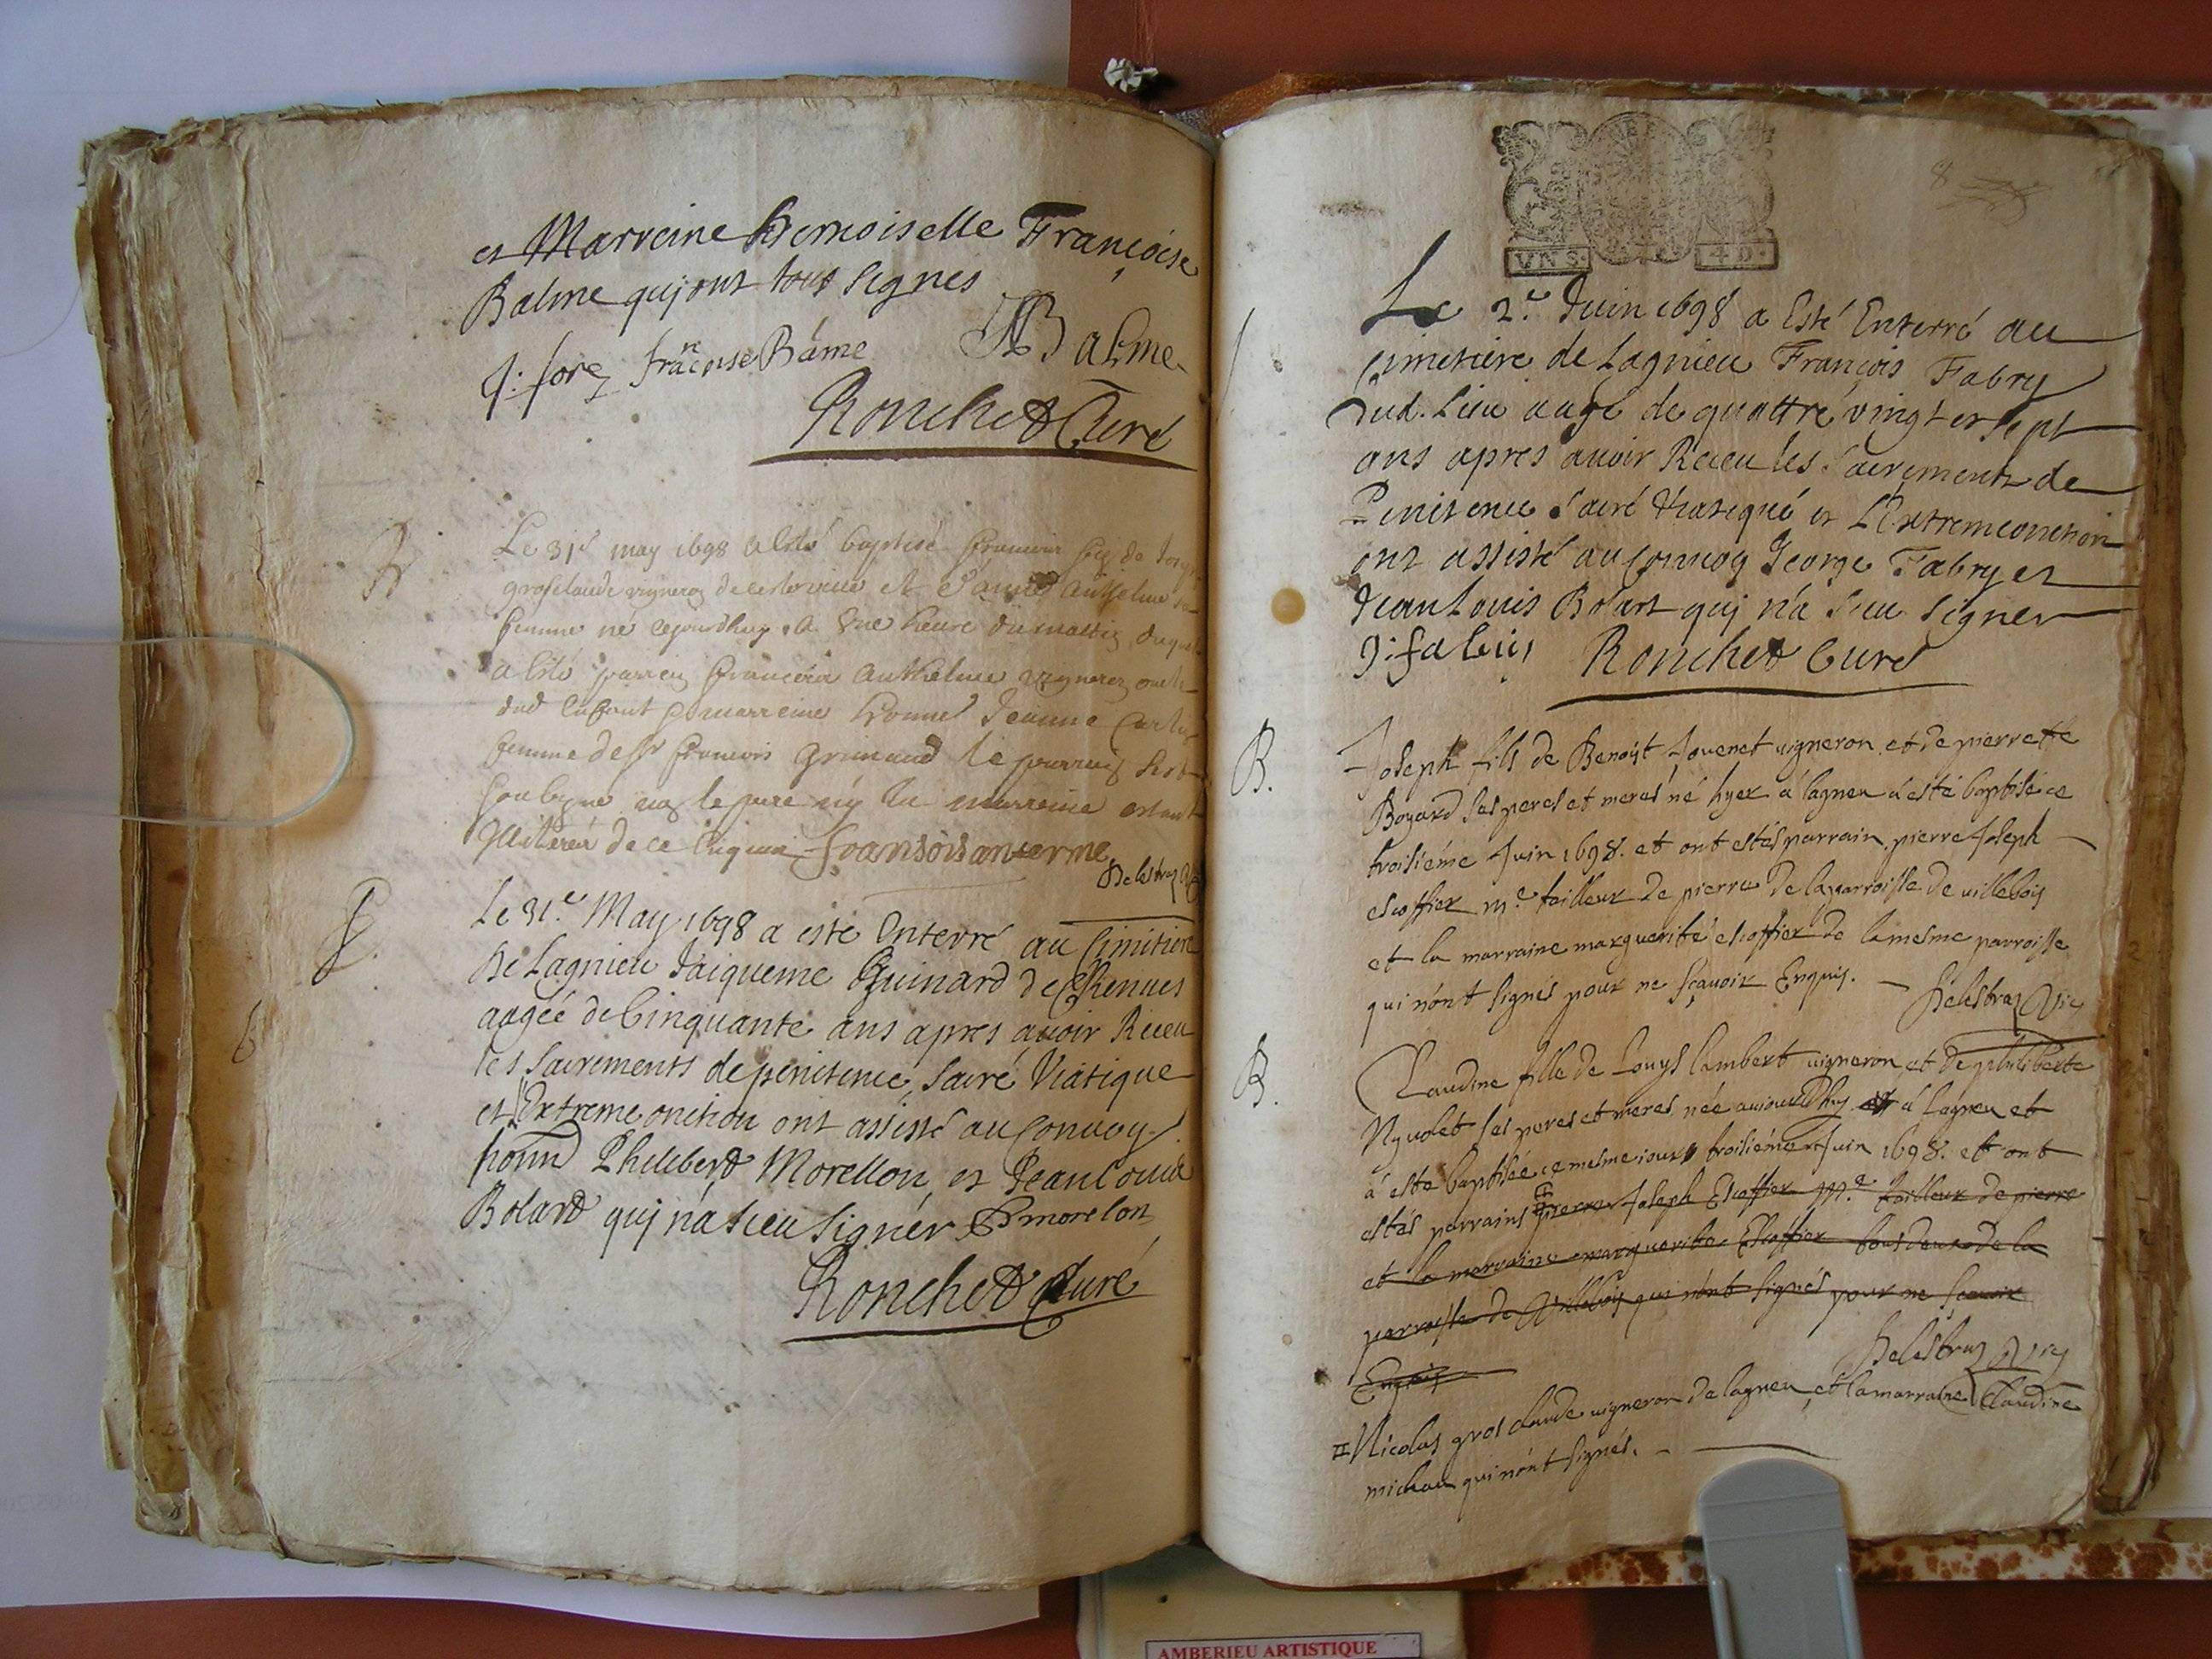 et Marreine Demoiselle Françoise
Balme quj ont tous signes
francoise Bâme Balme
Ronchet Curé
Le 31e may 1698 a esté baptisé francois fils de
groselaude vigneron de cette ville et d'anne Anthelme sa
femme né cejourdhuy a une heure du mattin duquel
a esté parrein francois Anthelme vigneron
dud enfant et marreine honneste Jeanne
femme de sr francois Grimaud le parrein
soubsigne non le pere ny la marreine estant
illiteres de ce enquis fransois anterme
Delestraz
Le 31.e May 1698 a esté Enterré au Cimitiere
de Lagnieu Jaiqueme Guinard de
aagée de Cinquante ans apres avoir Receu
les sacrements de penitence, sacré Viatique
et Extreme onction ont assisté au Convoy
honn Philibert Morellon, et Jean Louis
Bolard quj n'a sceu signer P morelon
Ronchet Curé
VN S. 4 D.
8
Le 2.e Juin 1698 a Esté Enterré au
Cimetiere de Lagnieu François Fabry
dud. Lieu aagé de quattre vingt et sept
ans apres avoir Receu les Sacrements de
Penitence Sacré Viatique et L'Extremeonction
ont assisté au Convoy George Fabry et
Jean Louis Bolart quj n'a sceu signer
Ronchet Curé
B. Joseph fils de Benoist Jouenet vigneron et de pierrette
Boyard ses peres et meres né hyer à lagneu a esté baptisé ce
troisiéme Juin 1698. et ont estés parrain pierre Joseph
escoffier m.e tailleur de pierre de la parroisse de villebois
et la marraine marguerite escoffier de la mesme parroisse
qui n'ont signés pour ne sçavoir Enquis. Delestraz Vic
B. Claudine fille de Louys lambert vigneron et de philiberte
Nyvolet ses peres et meres née aujourd'huy à Lagneu et
à esté baptisée ce mesme jour troisiéme Juin 1698. et ont
estés parrains pierre Joseph Escoffier m.e tailleur de pierre
et la marraine marguerite Escoffier tous deux de la
parroisse de Villebois qui n'ont signés pour ne sçavoir
Enquis Delestraz Vic
Nicolas gros claude vigneron de lagneu et la marraine Claudine
michau qui n'ont signés.
AMBERIEU ARTISTIQUE